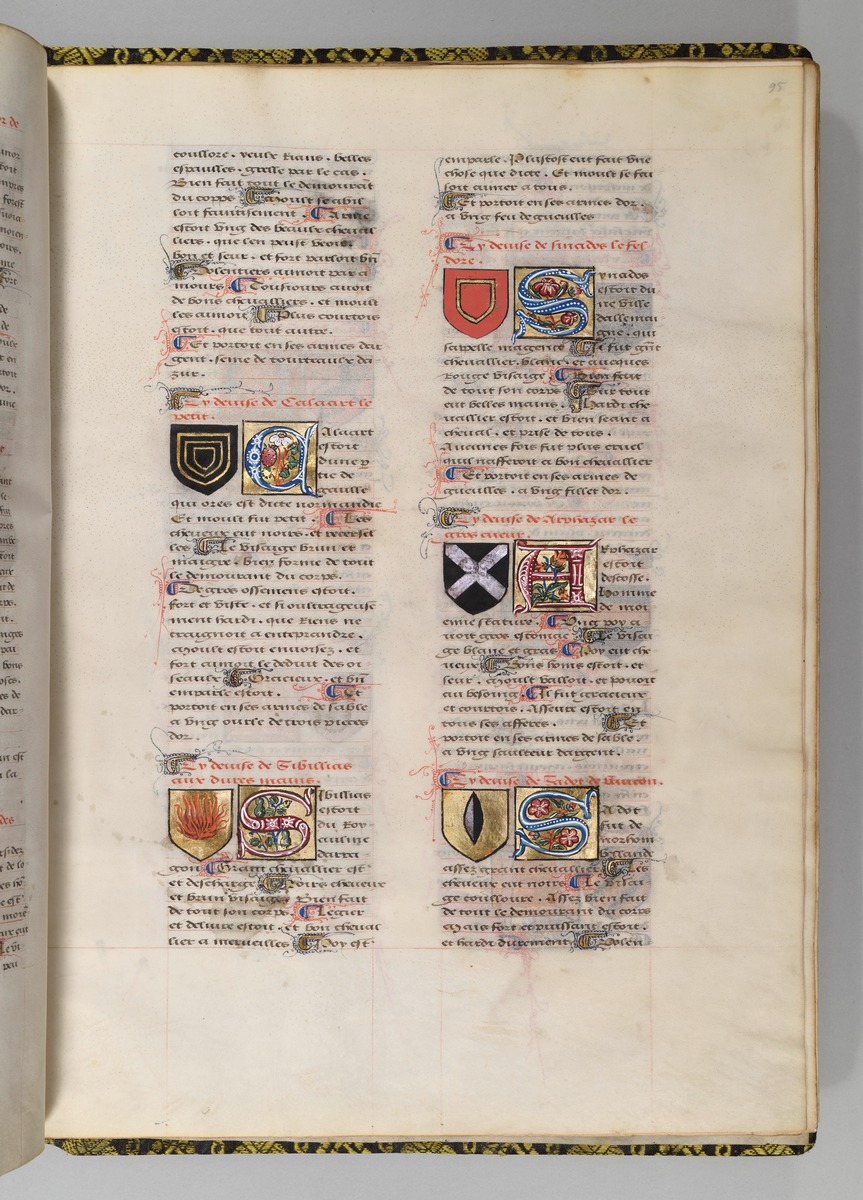 95
coulloré. yeulx Rians. belles
espaulles. gresle par le cas.
Bien fait tout le demourãt
du corps
soit faintisement. Armé
estoit vng des beaulx cheual
liers. que len peust veoir.
bon et seur. et fort parloit bñ
Volentiers aimoit par a
mours Tousiours auoit
de bons cheualliers. et moult
les aimoit Plus courtois
estoit. que tout autre.
Et portoit en ses armes dar
gent. seme de tourteaulx da
zur.
Cy deuise de Calaart le
petit.
Alaart
estoit
dune p
tie de
gaulle
qui ores est dicte normandie
Et moult fut petit. Les
cheueux eut noirs. et recersel
lés Le visaige brun et
maigre. bien forme de tout
le demourant du corps.
De gros ossemens estoit.
fort et viste. et si oultrageuse
ment hardi. que Riens ne
craignoit a enteprandre.
Moult estoit enuoisez. et
fort aimoit le deduit des oi
seaulx Gracieux. et bñ
emparle estoit. Et
portoit en ses armes de sable
a vng ourle de trois pieces
dor.
Cy deuise de Sibillias
aux dures mains.
Ibillias
estoit
du Roy
aulme
darra
gon Grant cheuallier est
et deschargé Noirs cheueux
et brun visaige Bien fait
de tout son corps. Legier
et deliure estoit. et bon cheual
lier a merueilles Poy est
emparle. Plustost eut fait vne
chose que dicte. Et moult se fai
soit aimer a tous.
Et portoit en ses armes dor.
a vng feu de gueulles
Cy deuise de sinados le fel
dore.
ynados
estoit du
ne ville
dallemai
gne. qui
sappelle magence Il fut grãt
cheuallier. blanc. et aucques
Rouge visaige Bien fait
de tout son corps Sur tout
eut belles mains. Hardi che
uallier estoit. et bien seant a
cheual. et prise de tous.
Aucunes fois fut plus cruel
quil nafferoit a bon cheuallier
Et portoit en ses armes de
gueulles. a vng fillet dor.
Cy deuise de Arphazar le
gros cueur.
Rphazar
estoit
descosse.
Homme
de moi
enne stature. Vng poy a
uoit gros estomac Le visai
ge blanc et gras Poy eut che
ueux Bons homs estoit. et
seur. Moult vailloit. et pouoit
au besoing Il fut gracieux
et courtois. Asseuré estoit en
tous ses afferes. Et
portoit en ses armes de sable.
a vng saulteur dargent.
Cy deuise de Sadot de
Adot
fut de
norhom
bellande
assez grant cheuallier Les
cheueux eut noirs Le visai
ge coulloure. Assez bien fait
de tout le demourant du corps
Mais fort et puissant estoit.
et hardi durement Volen